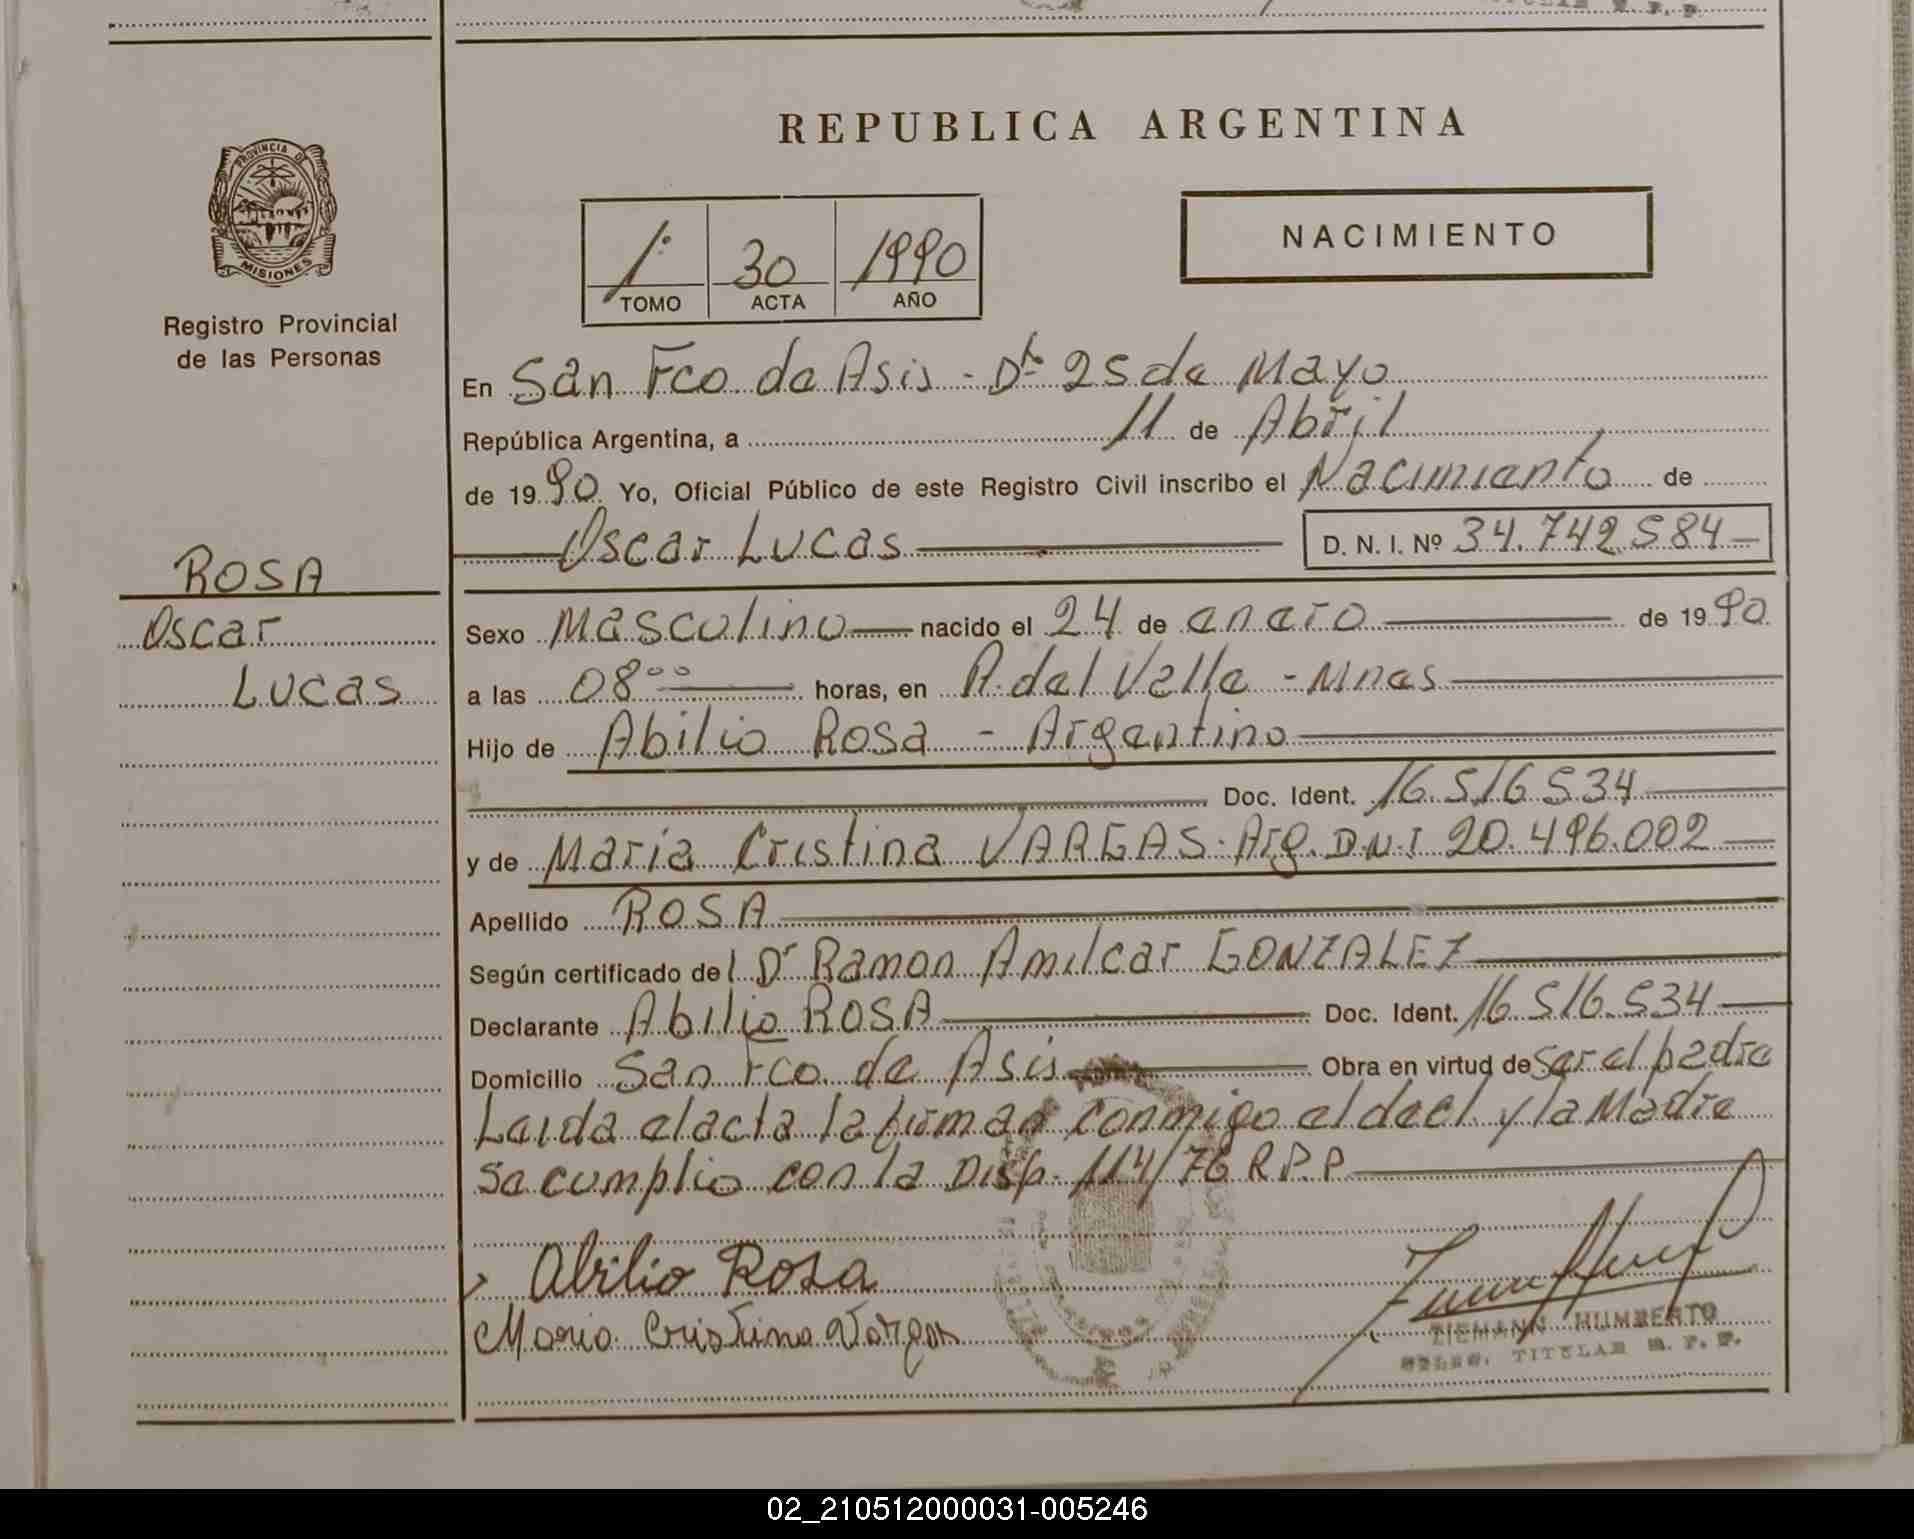 REPUBLICA ARGENTINA
PROVINCIA DE
MISIONES
Registro Provincial
de las Personas
1º 30 1990
TOMO ACTA AÑO
NACIMIENTO
En San Fco de Asis - Dto 25 de Mayo
República Argentina, a 11 de Abril
de 1990 Yo, Oficial Público de este Registro Civil inscribo el Nacimiento de
Oscar Lucas D. N. I. Nº 34.742.584
ROSA
Oscar
Lucas
Sexo Masculino nacido el 24 de enero de 1990
a las 08 00 horas, en A. del Valle - Mnes
Hijo de Abilio Rosa - Argentino
Doc. Ident. 16.516.534
y de Maria Cristina VARGAS. Arg. D.N.I 20.496.002
Apellido ROSA
Según certificado del Dr Ramon Amilcar GONZALEZ
Declarante Abilio ROSA Doc. Ident. 16.516.534
Domicilio San Fco. de Asis Obra en virtud de ser el padre
Leida el acta la firman conmigo el decl. y la Madre
se cumplio con la Disp. 114/76 R.P.P.
Abilio Rosa
Maria Cristina Vargas
ZIEMANN HUMBERTO
TITULAR R. P. P.
02_210512000031-005246